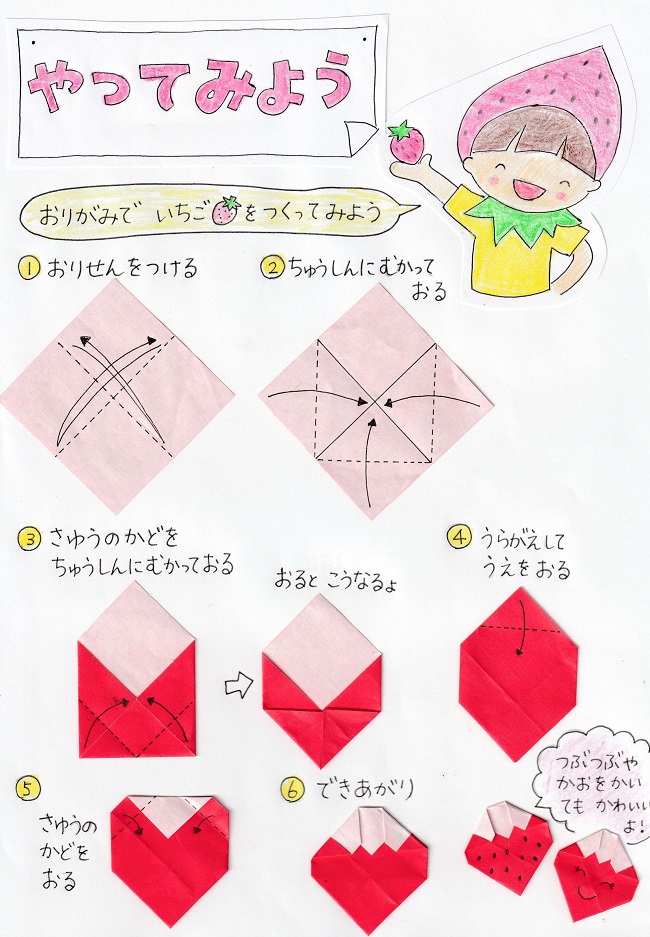 やってみよう
おりがみで いちごをつくってみよう
① おりせんをつける
② ちゅうしんにむかって
おる
③ さゆうのかどを
ちゅうしんにむかっておる
おると こうなるよ
④ うらがえして
うえをおる
⑤
さゆうの
かどを
おる
⑥ できあがり
つぶつぶや
かおをかい
ても かわいい
よ!